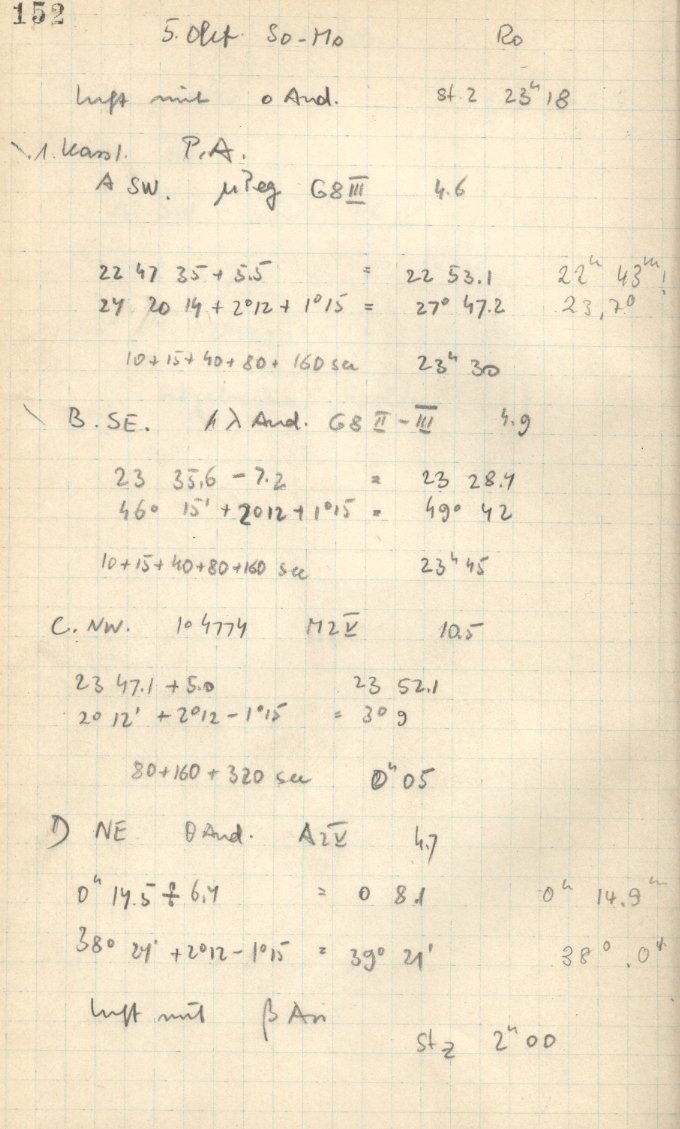 152
5. Okt. So-Mo Ro
Luft mit o And. St. z 23ʰ 18
1. Kass1. P.A.
A SW. μ Peg G8 III 4.6
22 47 35 + 5.5 = 22 53.1 22ʰ 43ᵐ!
24 20 14 + 2°12 + 1°15 = 27° 47.2 23,7°
10 + 15 + 40 + 80 + 160 sec 23ʰ 30
B. SE. λ And. G8 II - III 4.9
23 35,6 - 7.2 = 23 28.4
46° 15' + 2°12 + 1°15 = 49° 42
10 + 15 + 40 + 80 + 160 sec 23ʰ 45
C. NW. 104774 M2 V 10.5
23 47.1 + 5.0 23 52.1
2° 12' + 2°12 - 1°15 = 3° 9
80 + 160 + 320 sec 0ʰ 05
D NE θ And. A2 V 4.7
0ʰ 14.5 ÷ 6.4 = 0 8.1 0ʰ 14.9ᵐ
38° 24' + 2°12 - 1°15 = 39° 21' 38° .0
Luft mit β An
St z 2ʰ 00